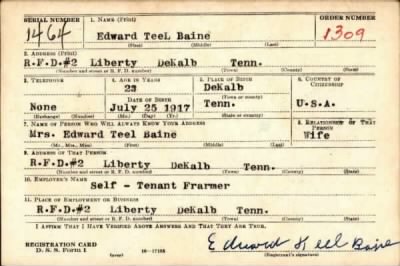 SERIAL NUMBER 1. NAME (Print) ORDER NUMBER
1464 Edward TeeL Baine 1309
(First) (Middle) (Last)
2. ADDRESS (Print)
R.F.D.#2 Liberty DeKalb Tenn.
(Number and street or R. F. D. number) (Town) (County) (State)
3. TELEPHONE 4. AGE IN YEARS 5. PLACE OF BIRTH 6. COUNTRY OF CITIZENSHIP
23 DeKalb
DATE OF BIRTH (Town or county)
None July 25 1917 Tenn. U.S.A.
(Exchange) (Number) (Mo.) (Day) (Yr.) (State or country)
7. NAME OF PERSON WHO WILL ALWAYS KNOW YOUR ADDRESS 8. RELATIONSHIP OF THAT PERSON
Mrs. Edward Teel Baine Wife
(Mr., Mrs., Miss) (First) (Middle) (Last)
9. ADDRESS OF THAT PERSON
R.F.D.#2 Liberty DeKalb Tenn.
(Number and street or R. F. D. number) (Town) (County) (State)
10. EMPLOYER'S NAME
Self - Tenant Frarmer
11. PLACE OF EMPLOYMENT OR BUSINESS
R.F.D.#2 Liberty DeKalb Tenn.
(Number and street or R. F. D. number) (Town) (County) (State)
I AFFIRM THAT I HAVE VERIFIED ABOVE ANSWERS AND THAT THEY ARE TRUE.
REGISTRATION CARD
D. S. S. Form 1 (over) 16-17105 Edward Teel Baine
(Registrant's signature)